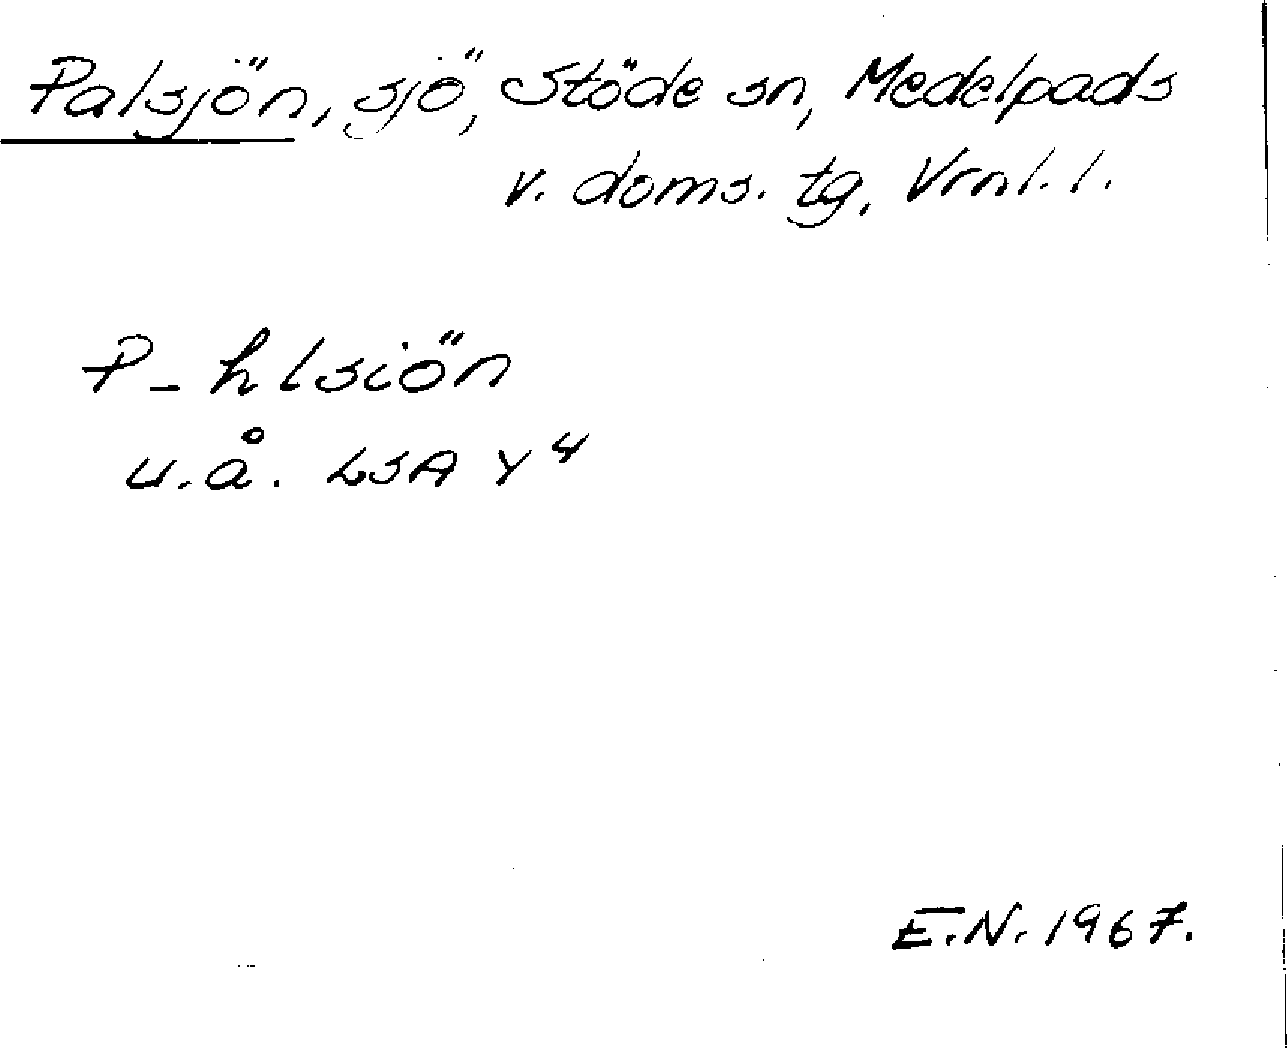 Palsjön, sjö, Stöde sn, Medelpads
v. doms. tg, Vrnl. l.
P-hlsiön
u.å. LSA Y 4
E.N. 1967.